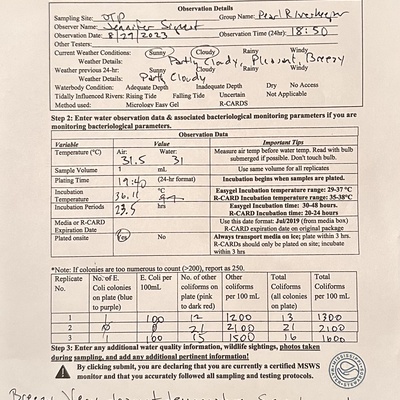 Observation Details
Sampling Site: OTP Group Name: Pearl Riverkeeper
Observer Name: Jennifer
Observation Date: 8/29/2023 Observation Time (24hr): 18:50
Other Testers:
Current Weather Conditions: Sunny Cloudy Rainy Windy
Weather Details: Partly Cloudy, Pleasant, Breezy
Weather previous 24-hr: Sunny Cloudy Rainy Windy
Weather Details: Partly Cloudy
Waterbody Condition: Adequate Depth Inadequate Depth Dry No Access
Tidally Influenced Rivers: Rising Tide Falling Tide Uncertain Not Applicable
Method used: Micrology Easy Gel R-CARDS
Step 2: Enter water observation data & associated bacteriological monitoring parameters if you are
monitoring bacteriological parameters.
Observation Data
Variable Value Important Tips
Temperature (°C) Air: 31.5 Water: 31 Measure air temp before water temp. Read with bulb
submerged if possible. Don't touch bulb.
Sample Volume 1 mL Use same volume for all replicates
Plating Time 19:40 (24-hr format) Incubation begins when samples are plated.
Incubation Temperature 36.11 °C Easygel Incubation temperature range: 29-37 °C
R-CARD Incubation temperature range: 35-38°C
Incubation Periods 23.5 hrs Easygel Incubation time: 30-48 hours.
R-CARD Incubation time: 20-24 hours
Media or R-CARD Expiration Date Use this date format: Jul/2019 (from media box)
R-CARD expiration date on original package
Plated onsite Yes No Always transport media on ice; plate within 3 hrs.
R-CARDs should only be plated on site; incubate
within 3 hrs
*Note: If colonies are too numerous to count (>200), report as 250.
Replicate No. No. of E. Coli colonies on plate (blue to purple) E. Coli per 100mL No. of other coliforms on plate (pink to dark red) Other coliforms per 100 mL Total Coliforms (all colonies on plate) Total Coliforms per 100 mL
1 1 100 12 1200 13 1300
2 0 0 21 2100 21 2100
3 1 100 15 1500 16 1600
Step 3: Enter any additional water quality information, wildlife sightings, photos taken
during sampling, and add any additional pertinent information!
By clicking submit, you are declaring that you are currently a certified MSWS
monitor and that you accurately followed all sampling and testing protocols.
Breezy